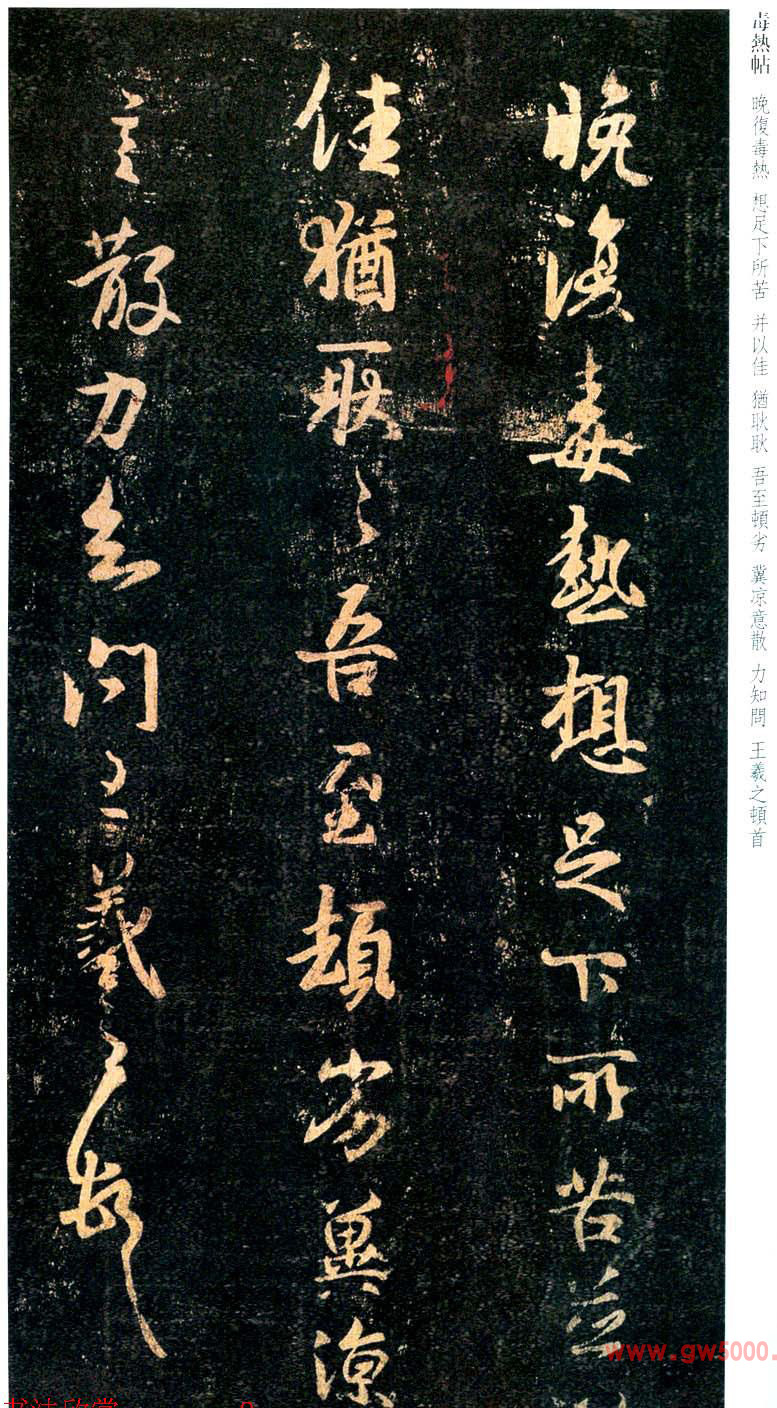 毒熱帖 晚復毒熱 想足下所苦 并以佳 猶耿耿 吾至頓劣 冀凉意散 力知問 王羲之頓首
晚復毒熱想足下所苦並
佳猶耿〻吾至頓劣冀涼
意散力知問王羲之頓首
www.gw5000.